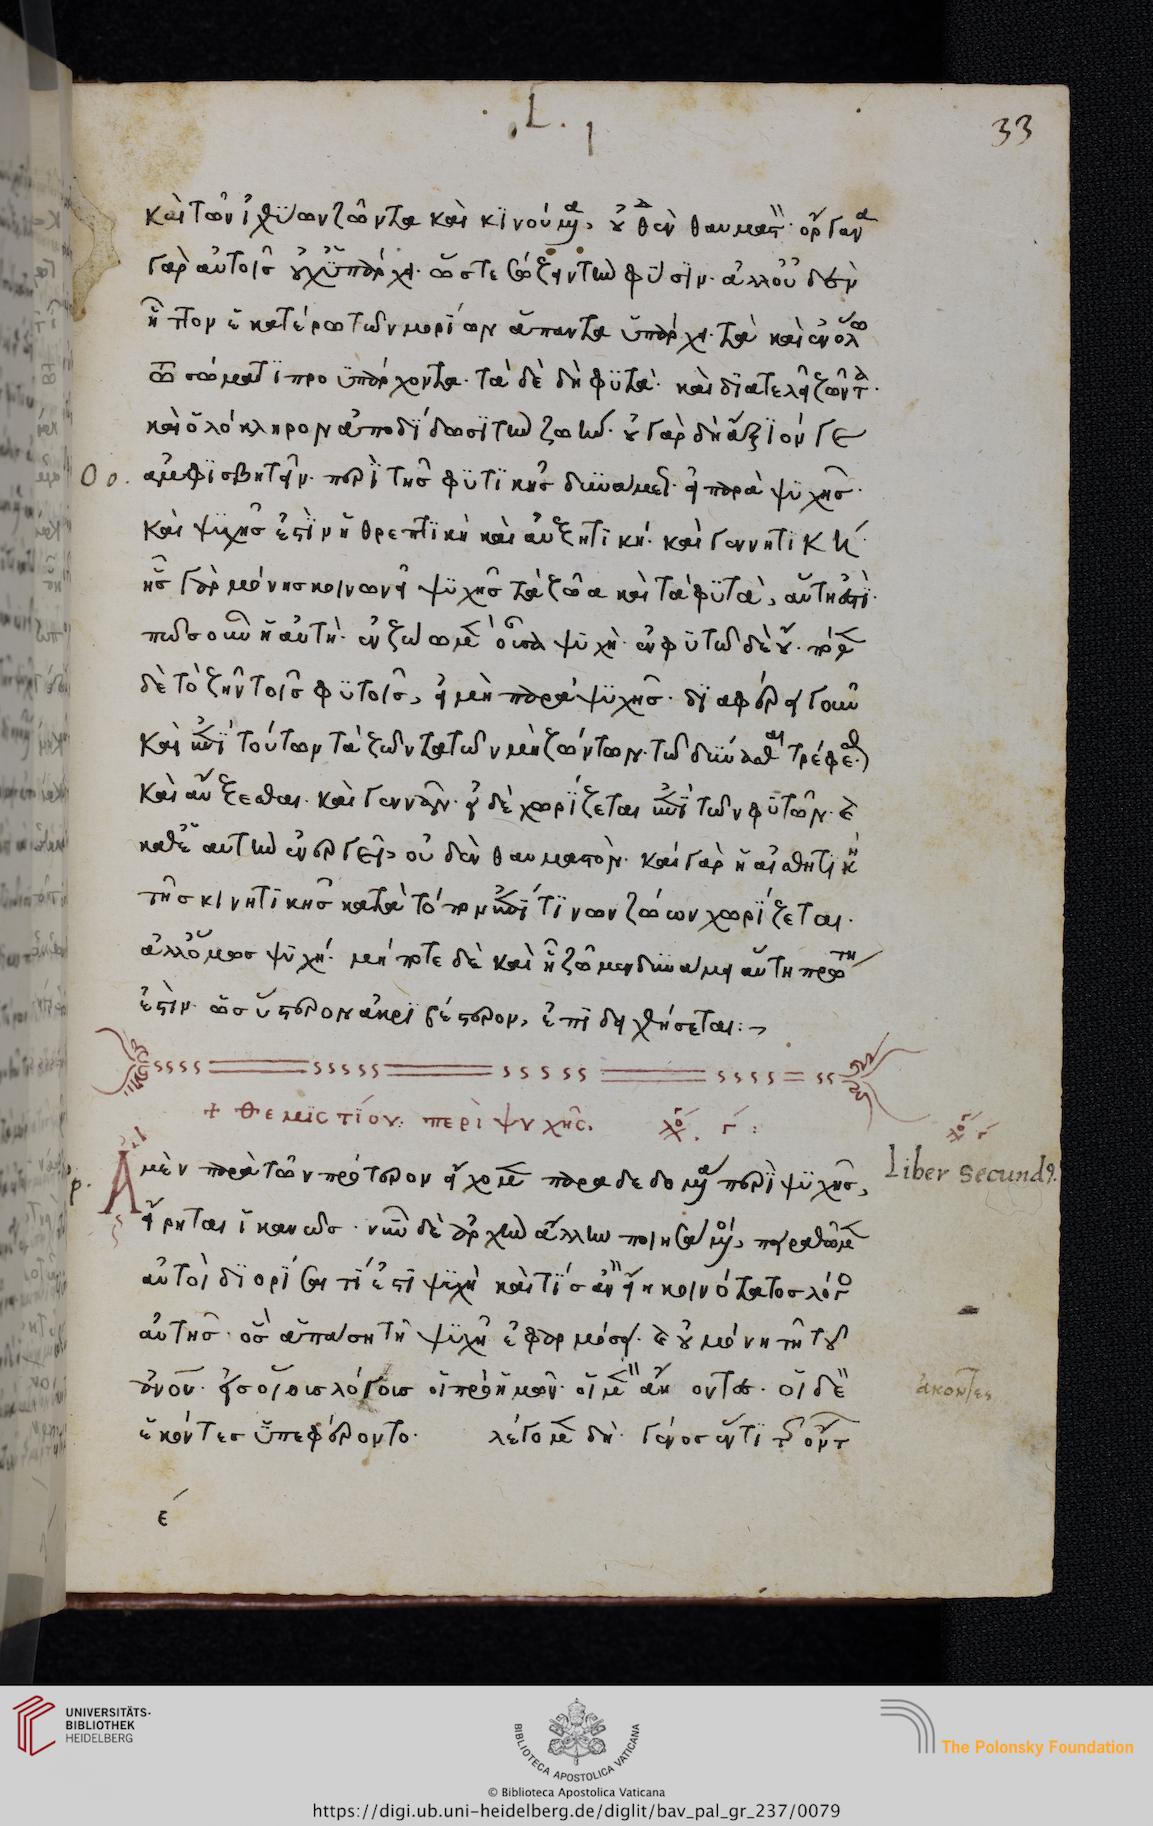 L.
33
καὶ τῶν ἰχθύων ζῶντα καὶ κινούμενα, οὐθὲν θαυμαστόν· ὄργανα
γὰρ αὐτοῖς οὐχ ὑπάρχει ὥστε σώζειν τὴν φύσιν· ἀλλ' οὐδὲν
ἧττον ἑκατέρω τῶν μορίων ἅπαντα ὑπάρχει τὰ καὶ ἐν ὅλω
τῶ σώματι προϋπάρχοντα· τὰ δὲ δὴ φυτὰ καὶ διατελεῖ ζῶντα·
καὶ ὁλόκληρον ἀποδίδωσι τὴν ζωήν· οὐ γὰρ δὴ ἄξιόν γε
ἀμφισβητεῖν περὶ τῆς φυτικῆς δυνάμεως εἰ παρὰ ψυχῆς·
καὶ ψυχῆς ἐστὶν ἡ θρεπτικὴ καὶ αὐξητικὴ καὶ γεννητικὴ
ἧς γὰρ μόνης κοινωνεῖ ψυχῆς τὰ ζῶα καὶ τὰ φυτά, αὕτη ἐστί·
πῶς οὖν ἡ αὐτὴ ἐν ζώω μὲν οὖσα ψυχὴ ἐν φυτῶ δὲ οὔ· πόθεν
δὲ τὸ ζῆν τοῖς φυτοῖς, εἰ μὴ παρὰ ψυχῆς· διαφέρει γοῦν
καὶ ἐπὶ τούτων τὰ ζῶντα τῶν μὴ ζώντων τῶ δύνασθαι τρέφεσθαι
καὶ αὔξεσθαι καὶ γεννᾶν· εἰ δὲ χωρίζεται ἐπὶ τῶν φυτῶν καὶ
καθ' ἑαυτὴν ἐνεργεῖ, οὐδὲν θαυμαστόν· καὶ γὰρ ἡ αἰσθητικὴ
τῆς κινητικῆς κατὰ τόπον ἐπί τινων ζώων χωρίζεται·
ἀλλ' ὅμως ψυχή· μήποτε δὲ καὶ ἧ ζῶμεν δυνάμει αὕτη πρώτη
ἐστίν· ὡς ὕστερον ἀκριβέστερον, ἐπιδειχθήσεται:
+ θεμιστίου: περὶ ψυχῆς. λόγος. γ:
λόγος γ
Liber secundus.
Ἃ μὲν παρὰ τῶν πρότερον εἴχομεν παραδεδομένα περὶ ψυχῆς,
εἴρηται ἱκανῶς· νῦν δὲ ἀρχὴν ἄλλην ποιησάμενοι, πειραθῶμεν
αὐτοὶ διορίσαι τί ἐστι ψυχὴ καὶ τίς ἂν εἴη κοινότατος λόγος
αὐτῆς· ὃς ἁπάση τῆ ψυχῆ ἐφαρμόσει καὶ οὐ μόνη τῆ τοῦ
ἀνου· εἰς οἵους λόγους οἱ πρὸ ἡμῶν οἱ μὲν ἄκοντες· οἱ δὲ
ἀκοντες
ἑκόντες ὑπεφέροντο· λέγομεν δὴ γένος ἕν τι τῶν ὄντων
ε
UNIVERSITÄTS-
BIBLIOTHEK
HEIDELBERG
BIBLIOTECA APOSTOLICA VATICANA
The Polonsky Foundation
© Biblioteca Apostolica Vaticana
https://digi.ub.uni-heidelberg.de/diglit/bav_pal_gr_237/0079